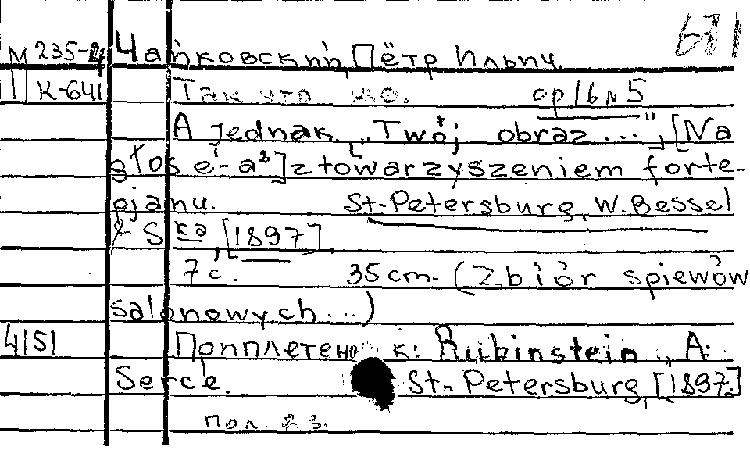 671
М 235-4 Чайковский, Пётр Ильич.
П К-641 Так что же. op 16 № 5
A jednak „Twój obraz ...", [Na
głos e'-a²] z towarzyszeniem forte-
pjanu. St.-Petersburg, W. Bessel
& S ka, [1897].
7 c. 35 cm. (Zbiór spiewów
salonowych ...)
4151 Попплетено к: Rubinstein, A.
Serce. St.-Petersburg, [1897.]
пол.